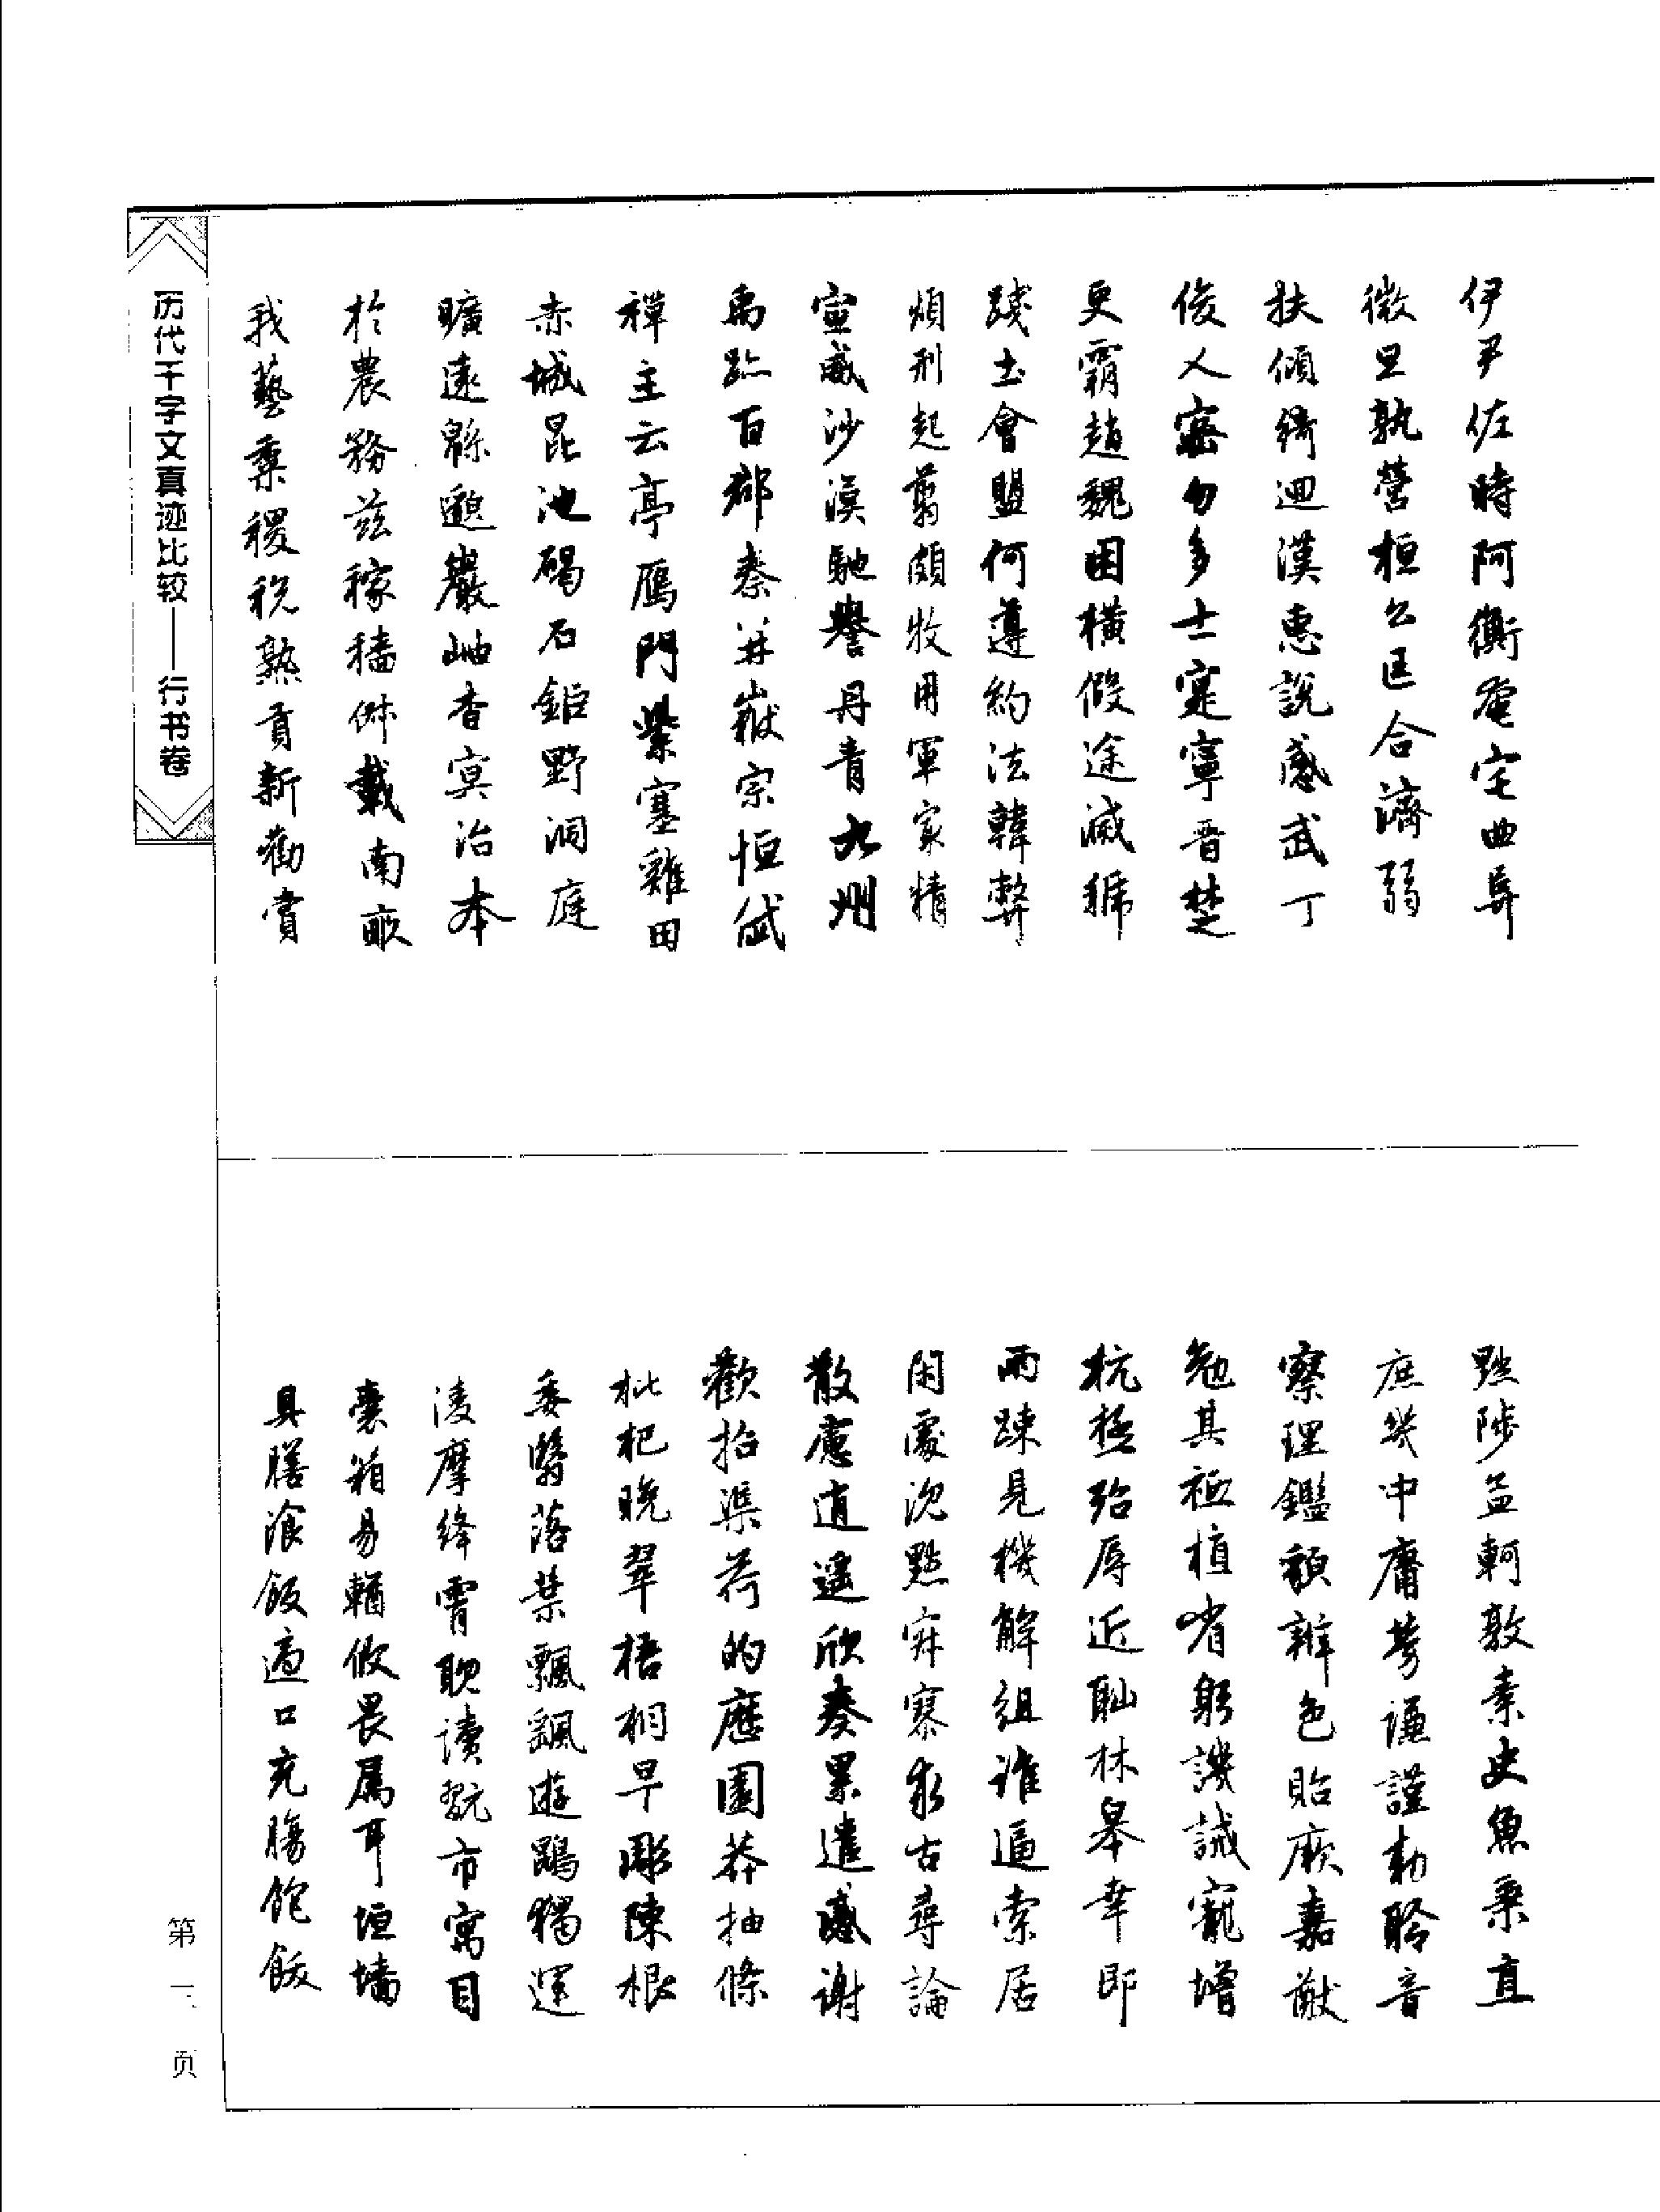 伊尹佐時阿衡奄宅曲阜
微旦孰營桓公匡合濟弱
扶傾綺迴漢惠說感武丁
俊乂密勿多士寔寧晉楚
更霸趙魏困橫假途滅虢
踐土會盟何遵約法韓弊
煩刑起翦頗牧用軍家精
宣威沙漠馳譽丹青九州
禹跡百郡秦并嶽宗恒岱
禪主云亭鴈門紫塞雞田
赤城昆池碣石鉅野洞庭
曠遠緜邈巖岫杳冥治本
於農務茲稼穡俶載南畝
我藝黍稷稅熟貢新勸賞
黜陟孟軻敦素史魚秉直
庶幾中庸勞謙謹勅聆音
察理鑑貌辨色貽厥嘉猷
勉其祗植省躬譏誡寵增
杭極殆辱近恥林皋幸即
兩疎見機解組誰逼索居
閑處沉默寂寥求古尋論
散慮逍遙欣奏累遣慼謝
歡招渠荷的歷園莽抽條
枇杷晚翠梧桐早彫陳根
委翳落葉飄飖遊鵾獨運
淩摩絳霄耽讀翫市寓目
囊箱易輶攸畏屬耳垣墻
具膳飡飯適口充腸飽飫
历代千字文真迹比较——行书卷
第一页